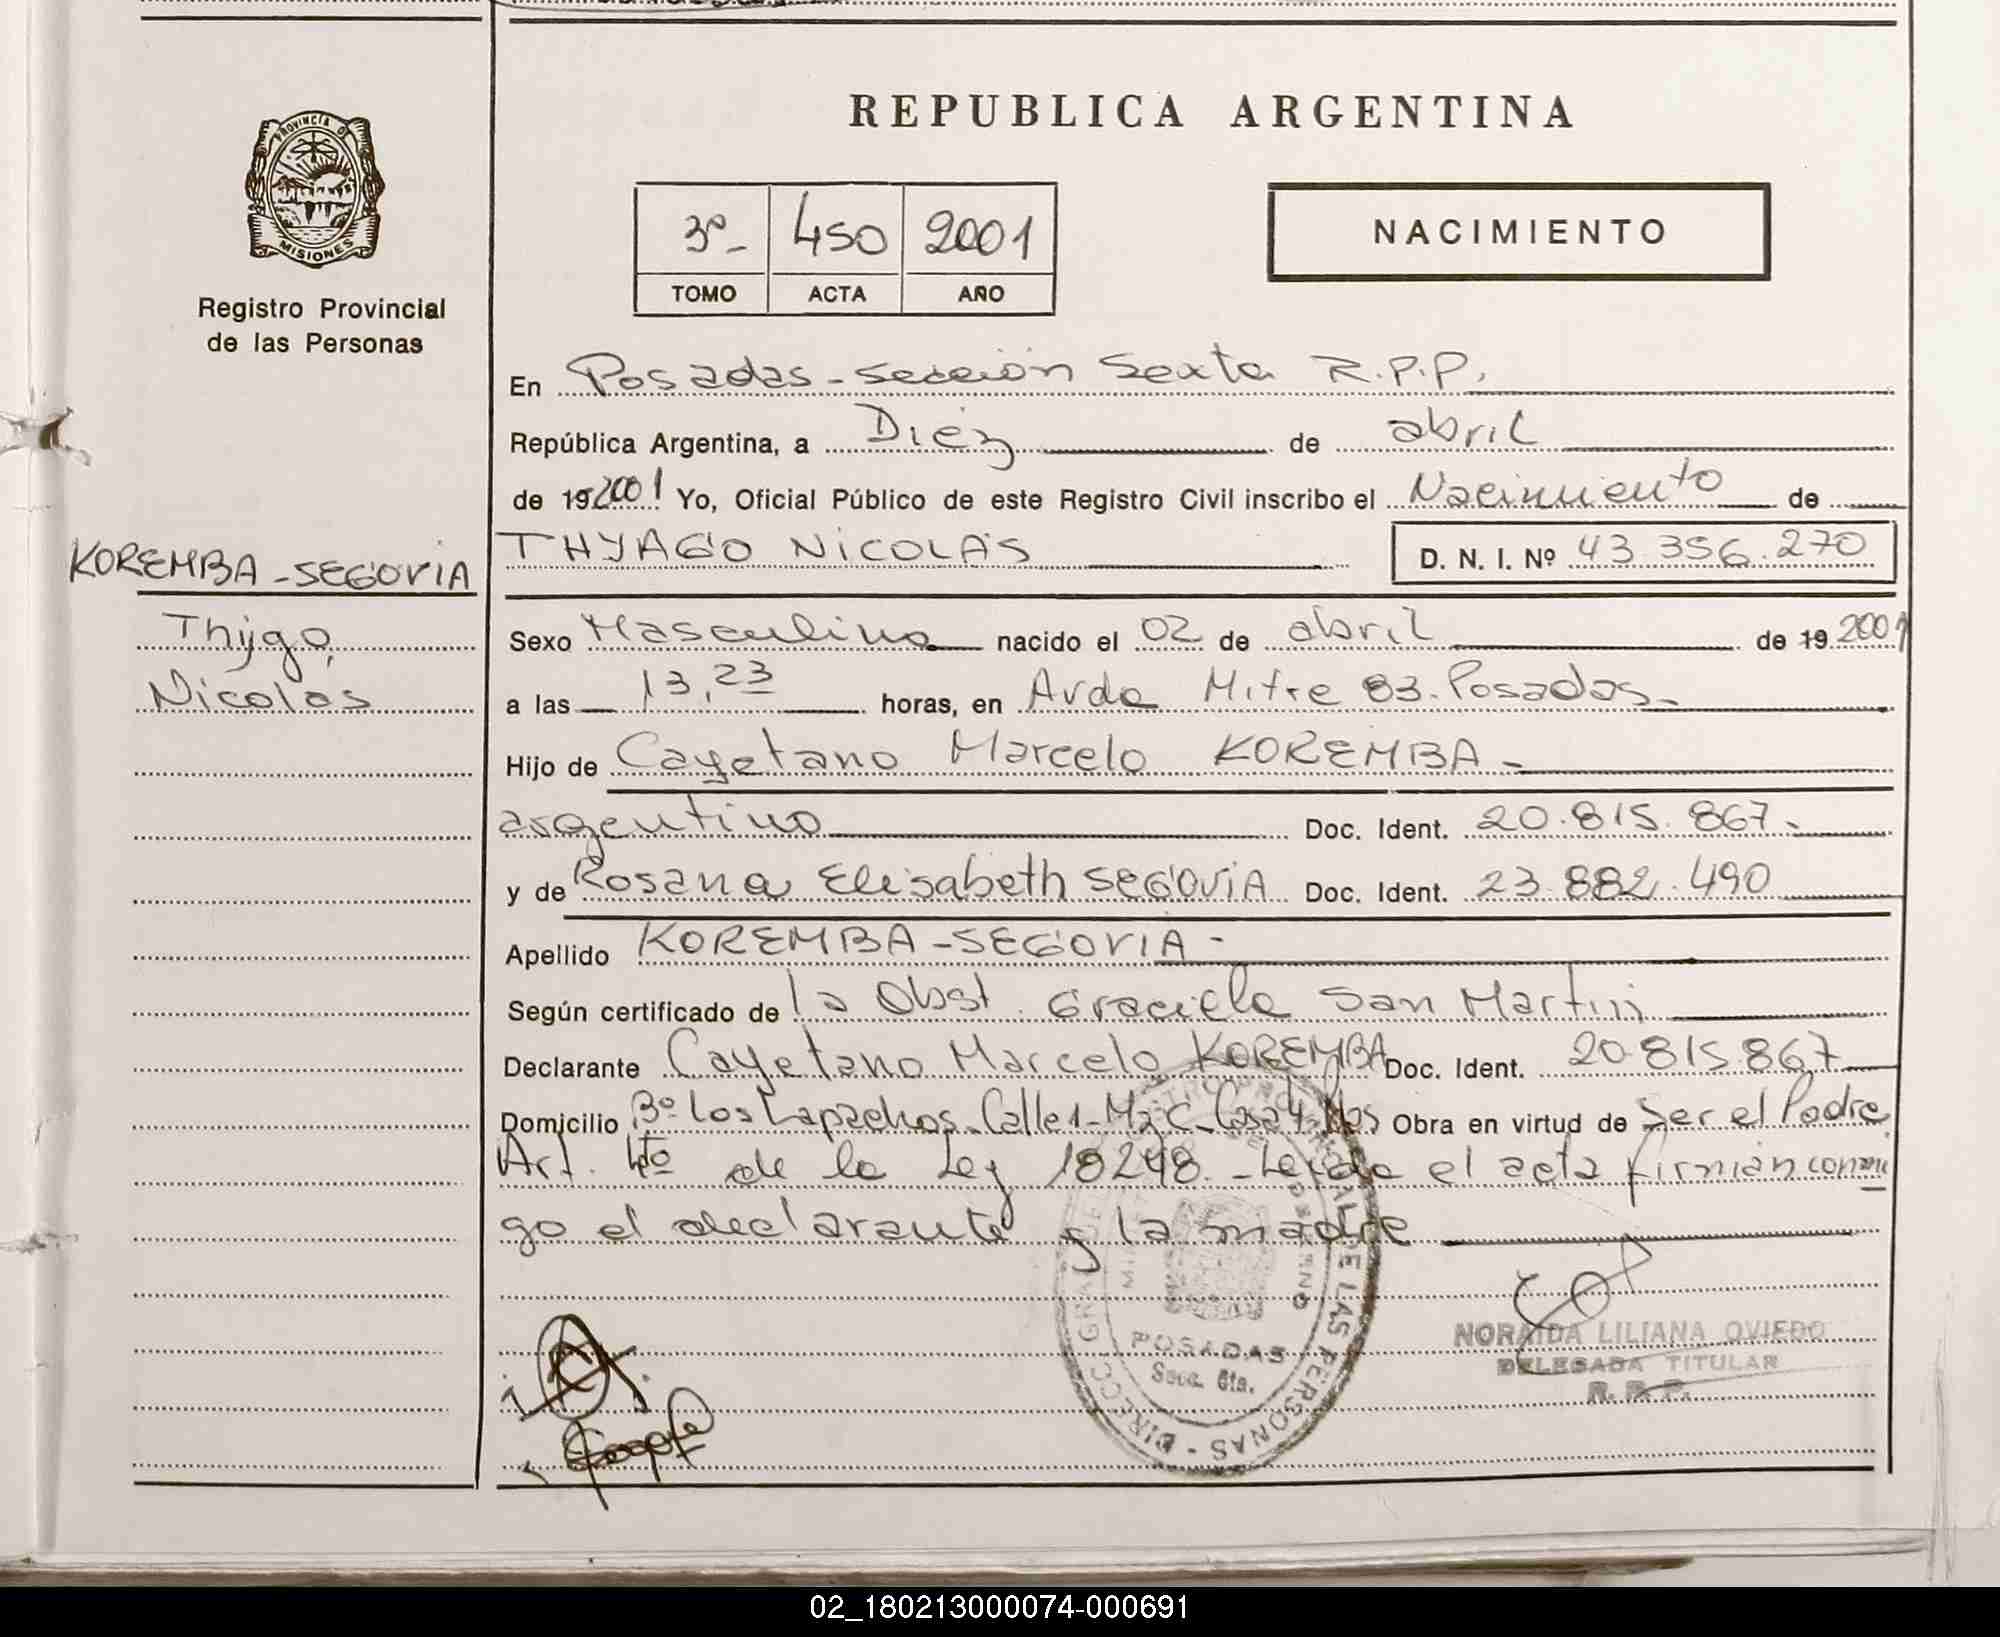 REPUBLICA ARGENTINA
PROVINCIA D
MISIONES
Registro Provincial
de las Personas
3º- 450 2001
TOMO ACTA AÑO
NACIMIENTO
En Posadas - sección Sexta R.P.P.
República Argentina, a Diez de abril
de 19 2001 Yo, Oficial Público de este Registro Civil inscribo el Nacimiento de
KOREMBA - SEGOVIA
Thygo
Nicolas
THYAGO NICOLAS D. N. I. Nº 43.356.270
Sexo Masculino nacido el 02 de abril de 19 2001
a las 13,23 horas, en Avda Mitre 83. Posadas -
Hijo de Cayetano Marcelo KOREMBA -
argentino Doc. Ident. 20.815.867.
y de Rosana Elisabeth SEGOVIA Doc. Ident. 23.882.490
Apellido KOREMBA - SEGOVIA -
Según certificado de la Obst. Graciela San Martin
Declarante Cayetano Marcelo KOREMBA Doc. Ident. 20.815.867
Domicilio Bº Los Lapachos - Calle 1 - Mz C - Casa 4 Obra en virtud de Ser el Padre
Art. 4to de la Ley 18248. - Leida el acta firman conmi
go el declarante y la madre
POSADAS
Secc. 6ta.
DE LAS PERSONAS - DIRECC. GRAL DEL
NORAIDA LILIANA OVIEDO
DELEGADA TITULAR
R. P. P.
02_180213000074-000691